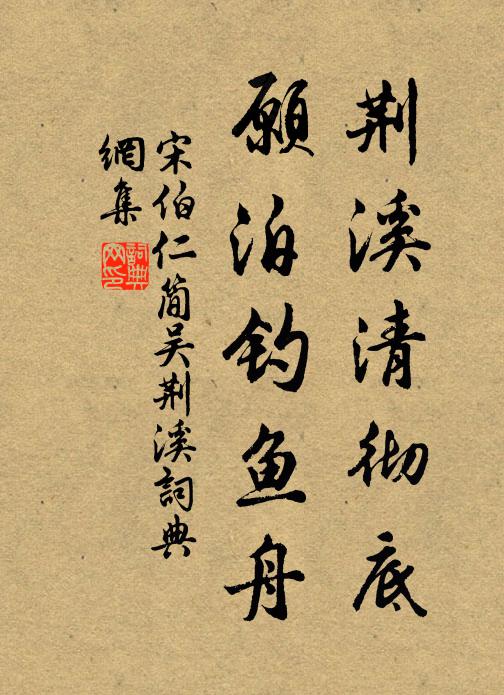 荆溪清彻底
願泊钓鱼舟
宋伯仁简吴荆溪詞典
網集
詞典
网印